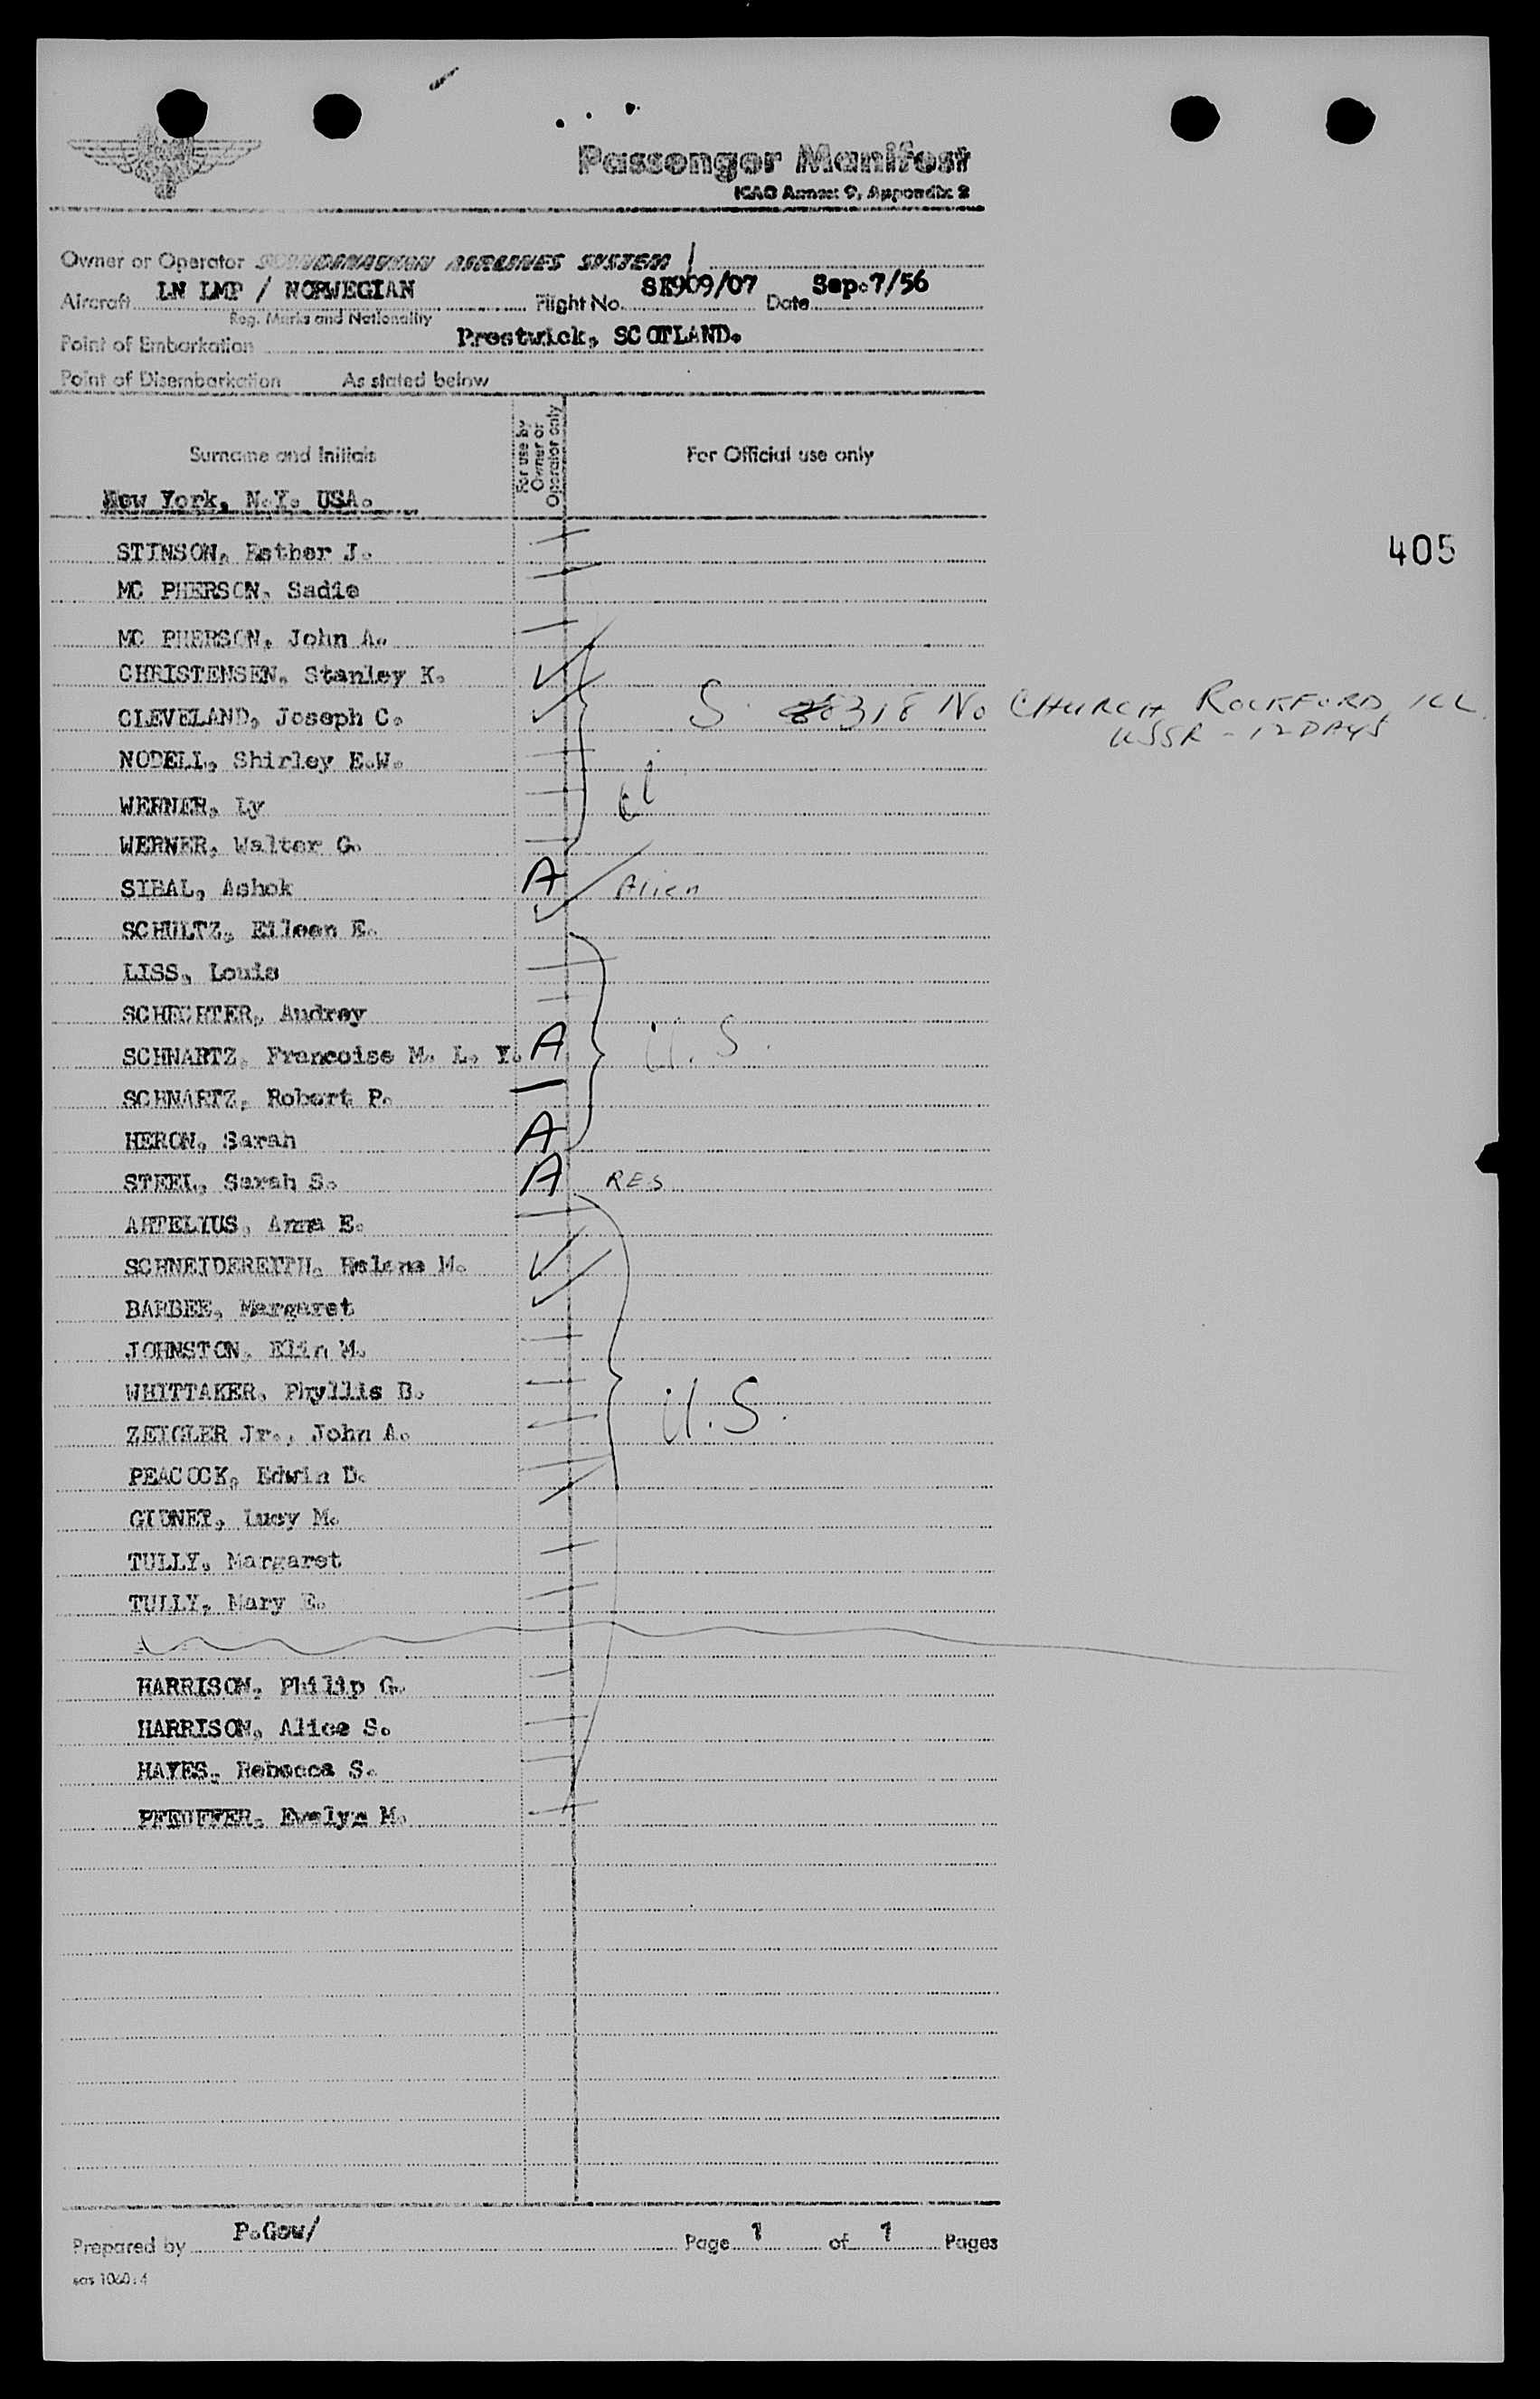 Passenger Manifest
ICAO Annex 9, Appendix 2
Owner or Operator SCANDINAVIAN AIRLINES SYSTEM
Aircraft LN LMP / NORWEGIAN Flight No. SK909/07 Date Sep.7/56
Reg. Marks and Nationality
Point of Embarkation Prestwick, SCOTLAND.
Point of Disembarkation As stated below
Surname and Initials For use by Owner or Operator only For Official use only
New York, N.Y. USA.
STINSON, Esther J.
405
MC PHERSON, Sadie
MC PHERSON, John A.
CHRISTENSEN, Stanley K.
CLEVELAND, Joseph C. S. 318 No CHURCH ROCKFORD ILL.
USSR - 12 DAYS
NODELL, Shirley E.W.
WERNER, Ly
WERNER, Walter G.
SIBAL, Ashok A Alien
SCHULTZ, Eileen E.
LISS, Louis
SCHECHTER, Audrey
SCHNARTZ, Francoise M. L. Y. A U.S.
SCHNARTZ, Robert P.
HERON, Sarah A
STEEL, Sarah S. A RES
ARTELIUS, Anna E.
SCHNEIDEREITH, Helene M.
BARBEE, Margaret
JOHNSTON, Elin M.
WHITTAKER, Phyllis B.
ZEIGLER Jr., John A. U.S.
PEACOCK, Edwin D.
GIDNEY, Lucy M.
TULLY, Margaret
TULLY, Mary E.
HARRISON, Philip G.
HARRISON, Alice S.
HAYES, Rebecca S.
PFEUFFER, Evelyn M.
Prepared by P.Gow/ Page 1 of 1 Pages
sas 1060:4